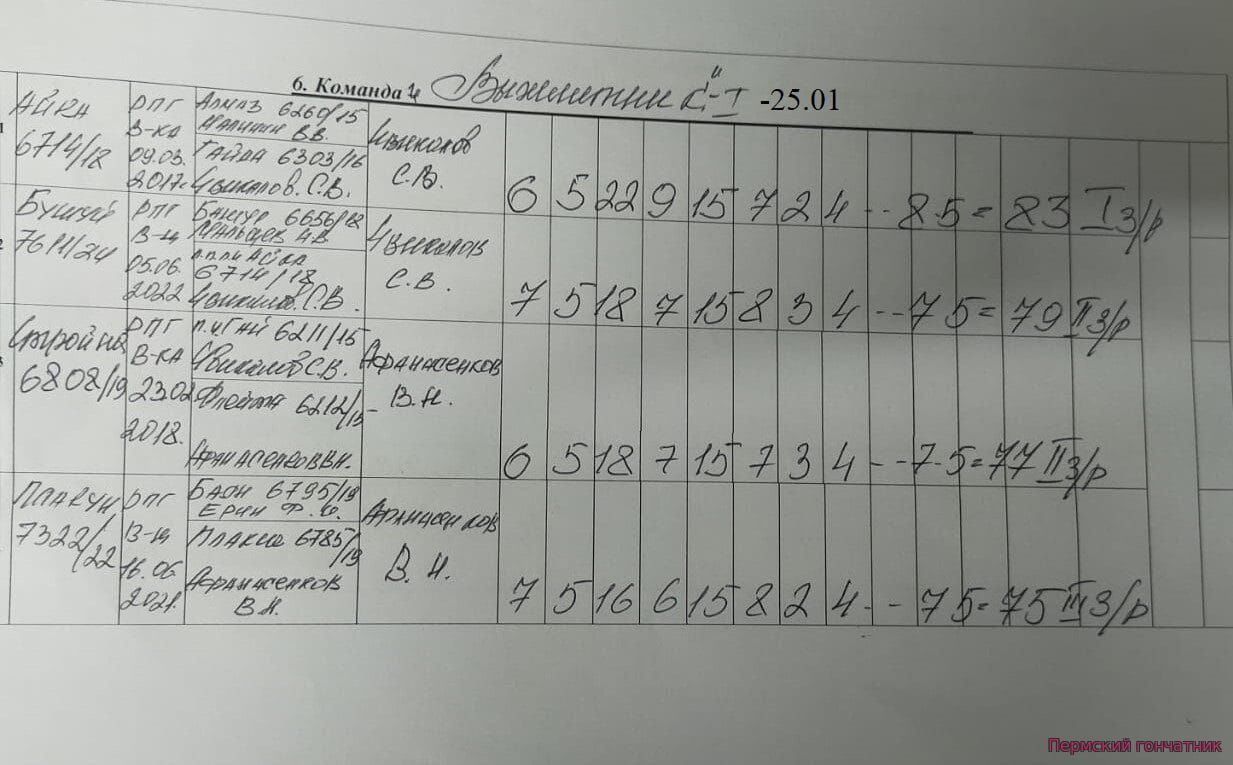 6. Команда "Выжлятник К"-I -25.01
АЙРА 6714/18
РПГ В-КА 09.03. 2017г.
АЛМАЗ 6260/15
МАЛИШИН В.В.
ГАЙДА 6303/16
Чвикалов. С.В.
Чвикалов С.В.
6 5 22 9 15 7 2 4 - - 8 5 = 83 I З/р
Бушуй 7611/24
РПГ В-Ц 05.06. 2022
6656/18
АЙРА 6714/18
Чвикалов С.В.
Чвикалов С.В.
7 5 18 7 15 8 3 4 - - 7 5 = 79 II З/р
Стройна 6808/19
РПГ В-КА 23.02 2018.
6211/15
Чвикалов С.В.
Флейта 6212/15
Афанасенков В.Н.
Афанасенков В.Н.
6 5 18 7 15 7 3 4 - - 7 5 = 77 II З/р
7322/22
РПГ В-Ц 16.06 2021.
БАОН 6795/19
ЕРИН Ф. Ю.
Плакса 6785/19
Афанасенков В.Н.
Афанасенков В. Н.
7 5 16 6 15 8 2 4 - - 7 5 = 75 III З/р
Пермский гончатник